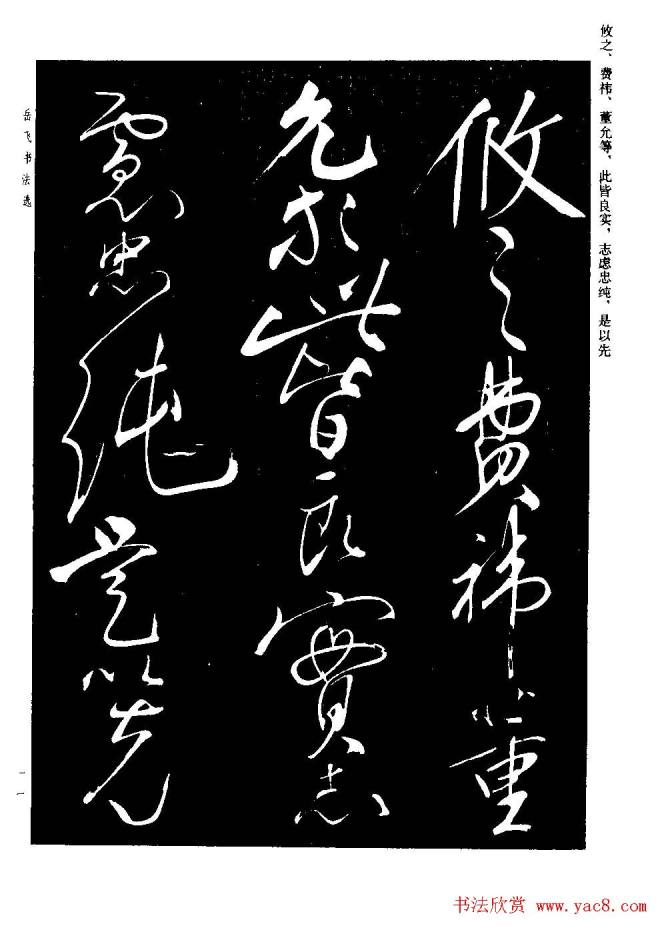 攸之、费祎、董允等，此皆良实，志虑忠纯，是以先
攸之費禕董
允等此皆良實志
慮忠純是以先
岳飞书法选
一一
书法欣赏 www.yac8.com